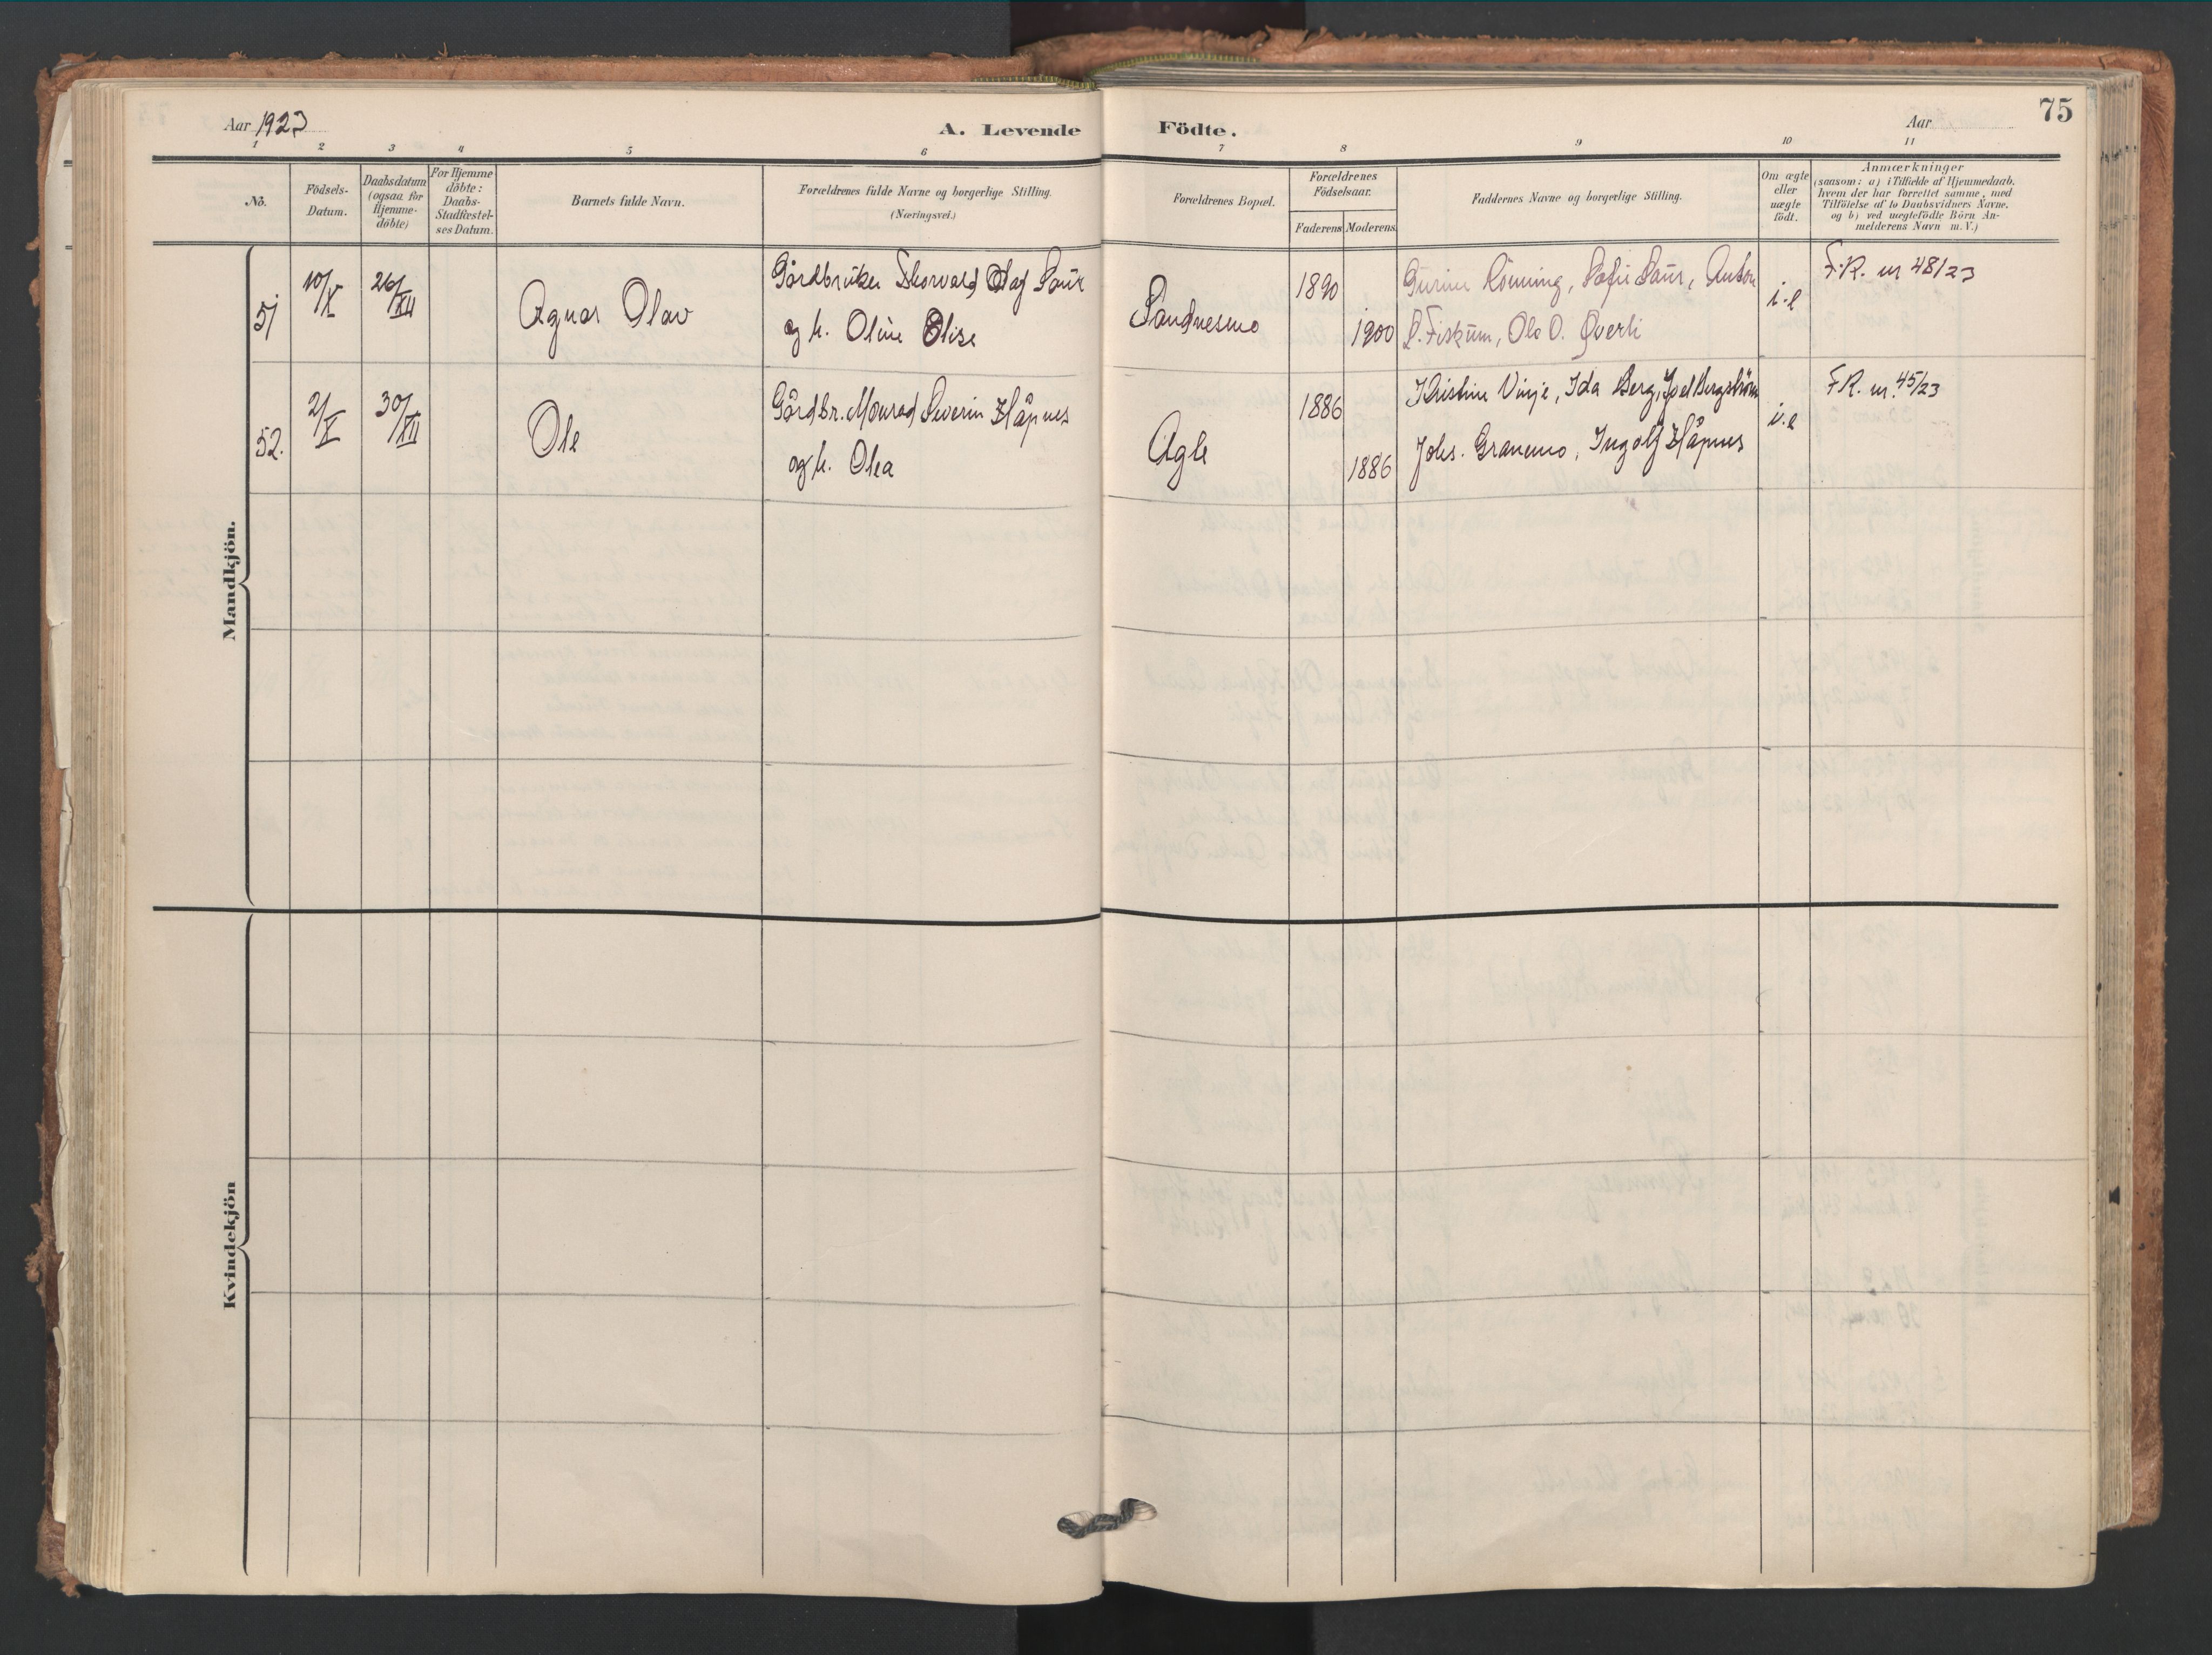 Aar 1923
A. Levende
Födte.
Aar
75
1 2 3 4 5 6 7 8 9 10 11
No.
Födsels-
Datum.
Daabsdatum
(ogsaa for
Hjemme-
döbte)
For Hjemme
döbte:
Daabs-
Stadfæstel-
ses Datum.
Barnets fulde Navn.
Forældrenes fulde Navne og borgerlige Stilling.
(Næringsvei.)
Forældrenes Bopæl.
Forældrenes
Födselsaar.
Faderens
Moderens.
Faddernes Navne og borgerlige Stilling.
Om ægte
eller
uægte
födt.
Anmærkninger
(saasom: a) i Tilfælde af Hjemmedaab,
hvem der har forrettet samme, med
Tilföielse af to Daabsvidners Navne,
og b) ved uægtefödte Börn An-
melderens Navn m. V.)
Mandkjön.
51
10/X
26/XII
Agnar Olav
Gårdbruker Thorvald Olaf Saur
og h. Oline Elise
Sandnesmo
1890
1900
Gurine Rönning, Sofie Saur, Anton
L. Fiskum, Ole O. Överli
i.e
F.R. nr 48/23
52.
2/X
30/XII
Ole
Gårdbr. Monrad Severin Håpnes
og h. Olea
Agle
1886
1886
Kristine Vinje, Ida Berg, Joel Bergström
Johs. Granemo, Ingolf Håpnes
i.e
F.R. nr. 45/23
Kvindekjön